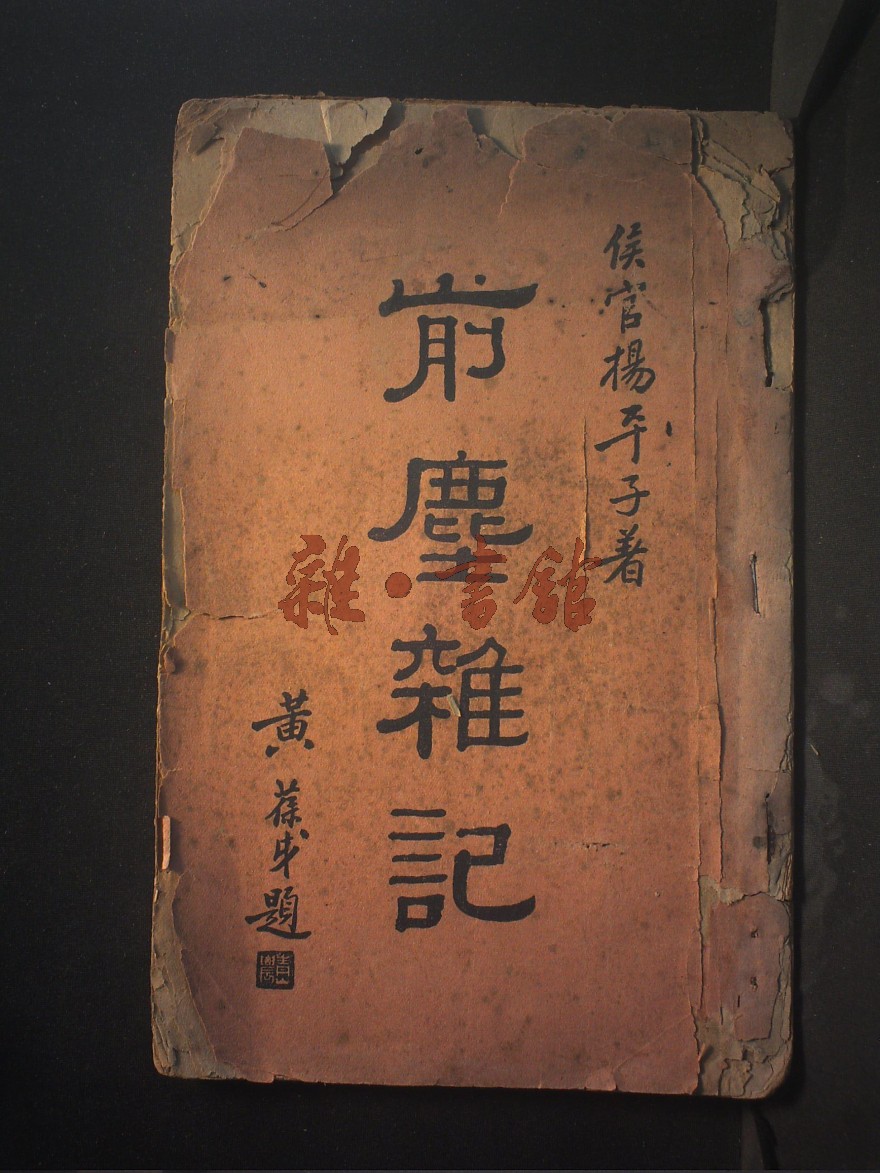 侯官楊平子著
前塵雜記
黃葆戉題
雜·書館